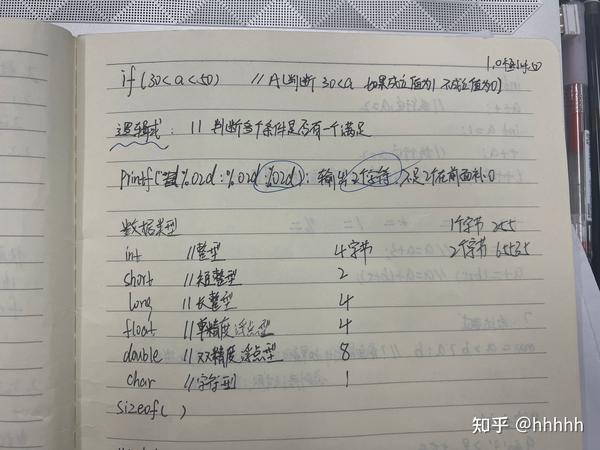 1.0恒小于50
if(30<a<50) //A(判断 30<a 如果成立值为1 不成立值为0)
逻辑或: || 判断多个条件是否有一个满足
Printf("%02d:%02d:%02d): 输出2个字符, 不足2个在前面补0
数据类型 1个字节 255
int //整型 4字节 2个字节 65535
short //短整型 2
long //长整型 4
float //单精度浮点型 4
double //双精度浮点型 8
char //字符型 1
sizeof( )
知乎 @hhhhh